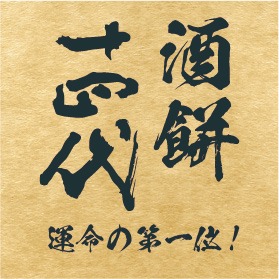 酒餅
十四代
運命の第一位!